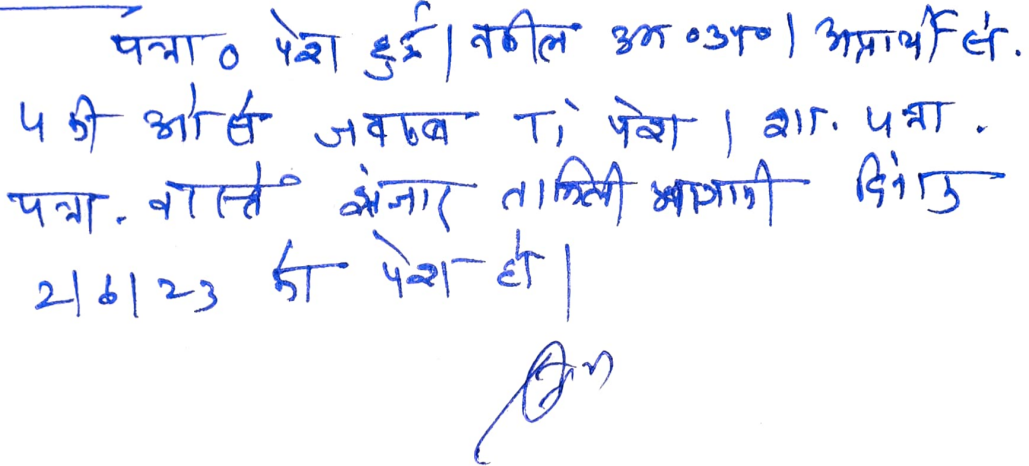 पत्रा० पेश हुई। वकील उभ०उप०। अप्रार्थी सं.
5 की ओर से जवाब पेश। शा. पत्रा.
पत्रा. वास्ते इंतजार तामिली आगामी दिनांक
2/6/23 को पेश हो।